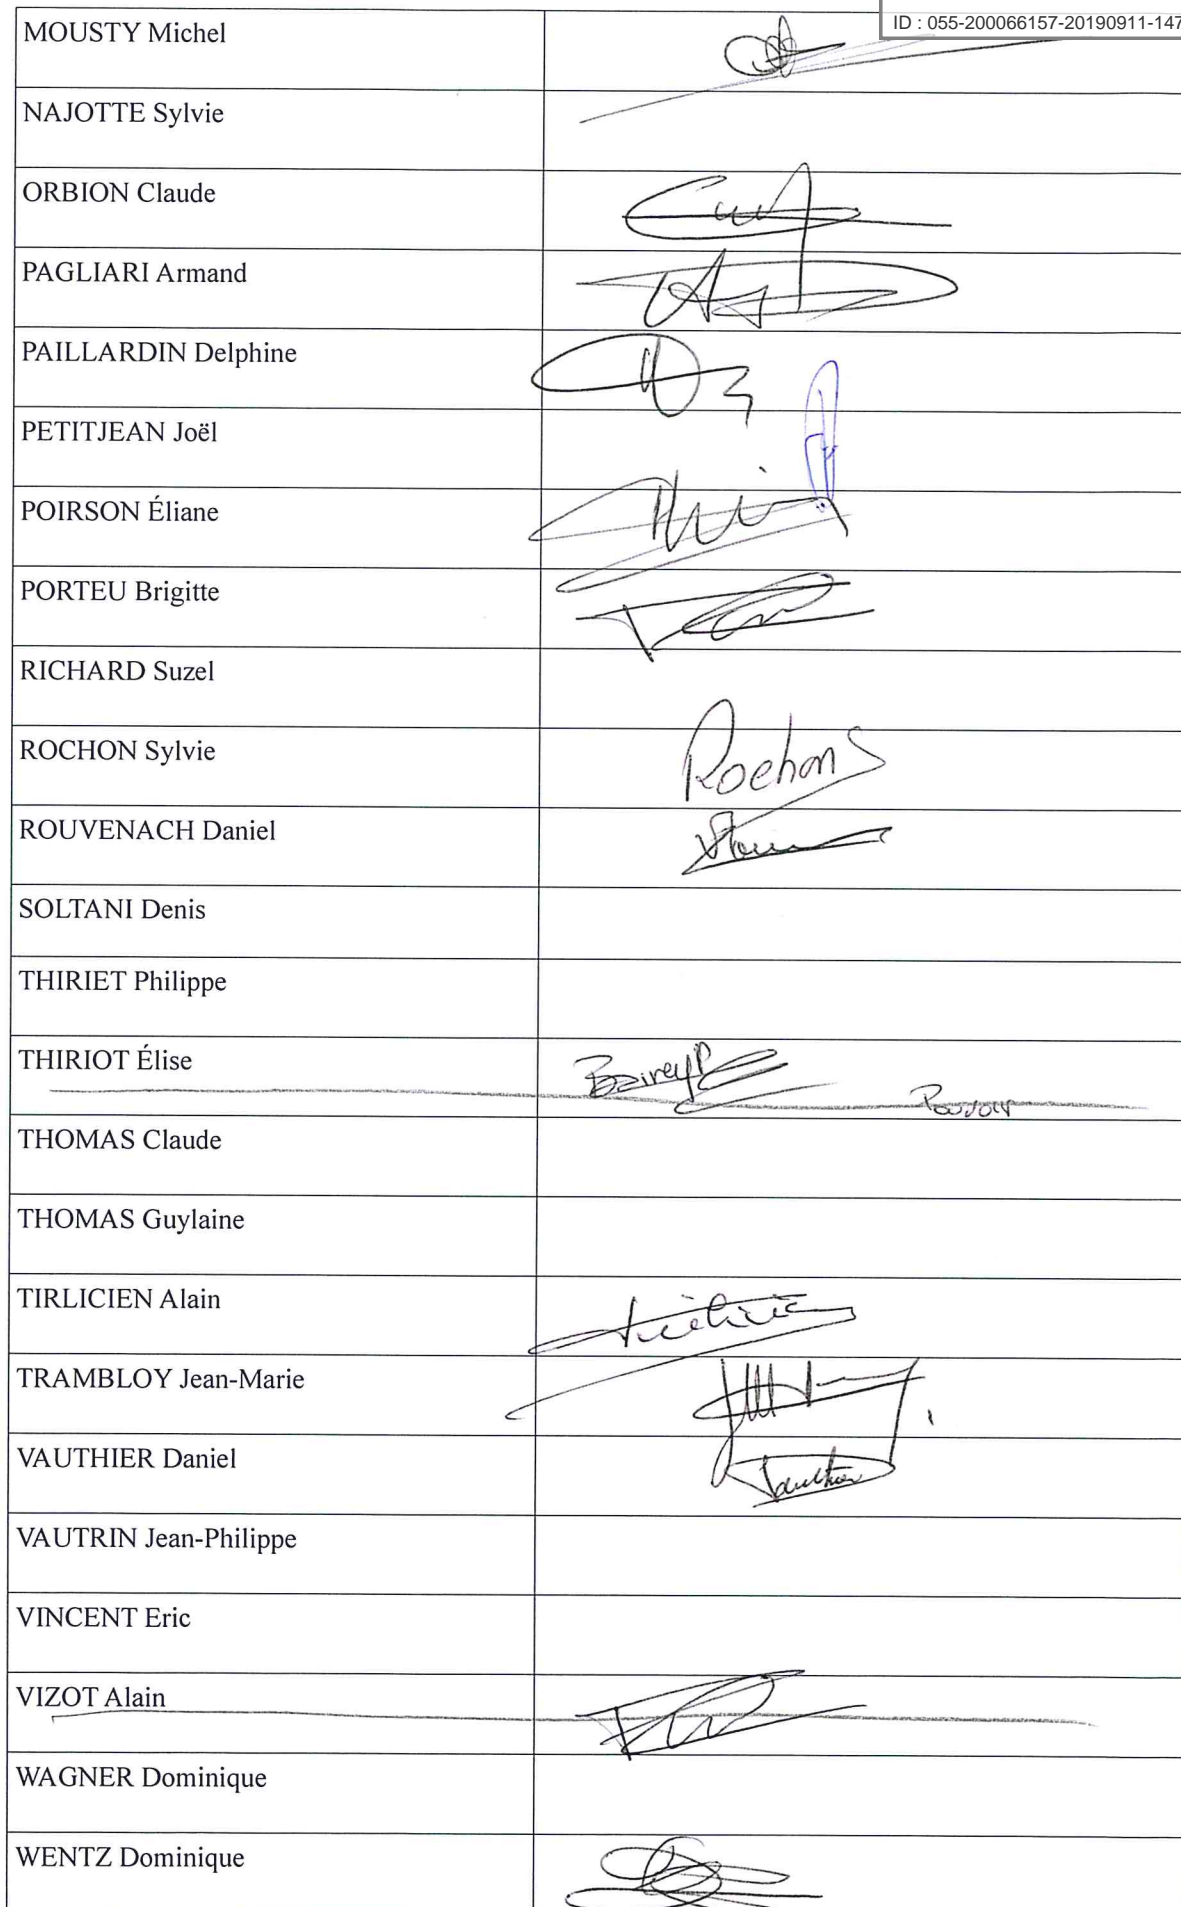 ID : 055-200066157-20190911-147
MOUSTY Michel
NAJOTTE Sylvie
ORBION Claude
PAGLIARI Armand
PAILLARDIN Delphine
PETITJEAN Joël
POIRSON Éliane
PORTEU Brigitte
RICHARD Suzel
ROCHON Sylvie
Rochon S
ROUVENACH Daniel
SOLTANI Denis
THIRIET Philippe
THIRIOT Élise
Pouvoir
THOMAS Claude
THOMAS Guylaine
TIRLICIEN Alain
TRAMBLOY Jean-Marie
VAUTHIER Daniel
VAUTRIN Jean-Philippe
VINCENT Eric
VIZOT Alain
WAGNER Dominique
WENTZ Dominique